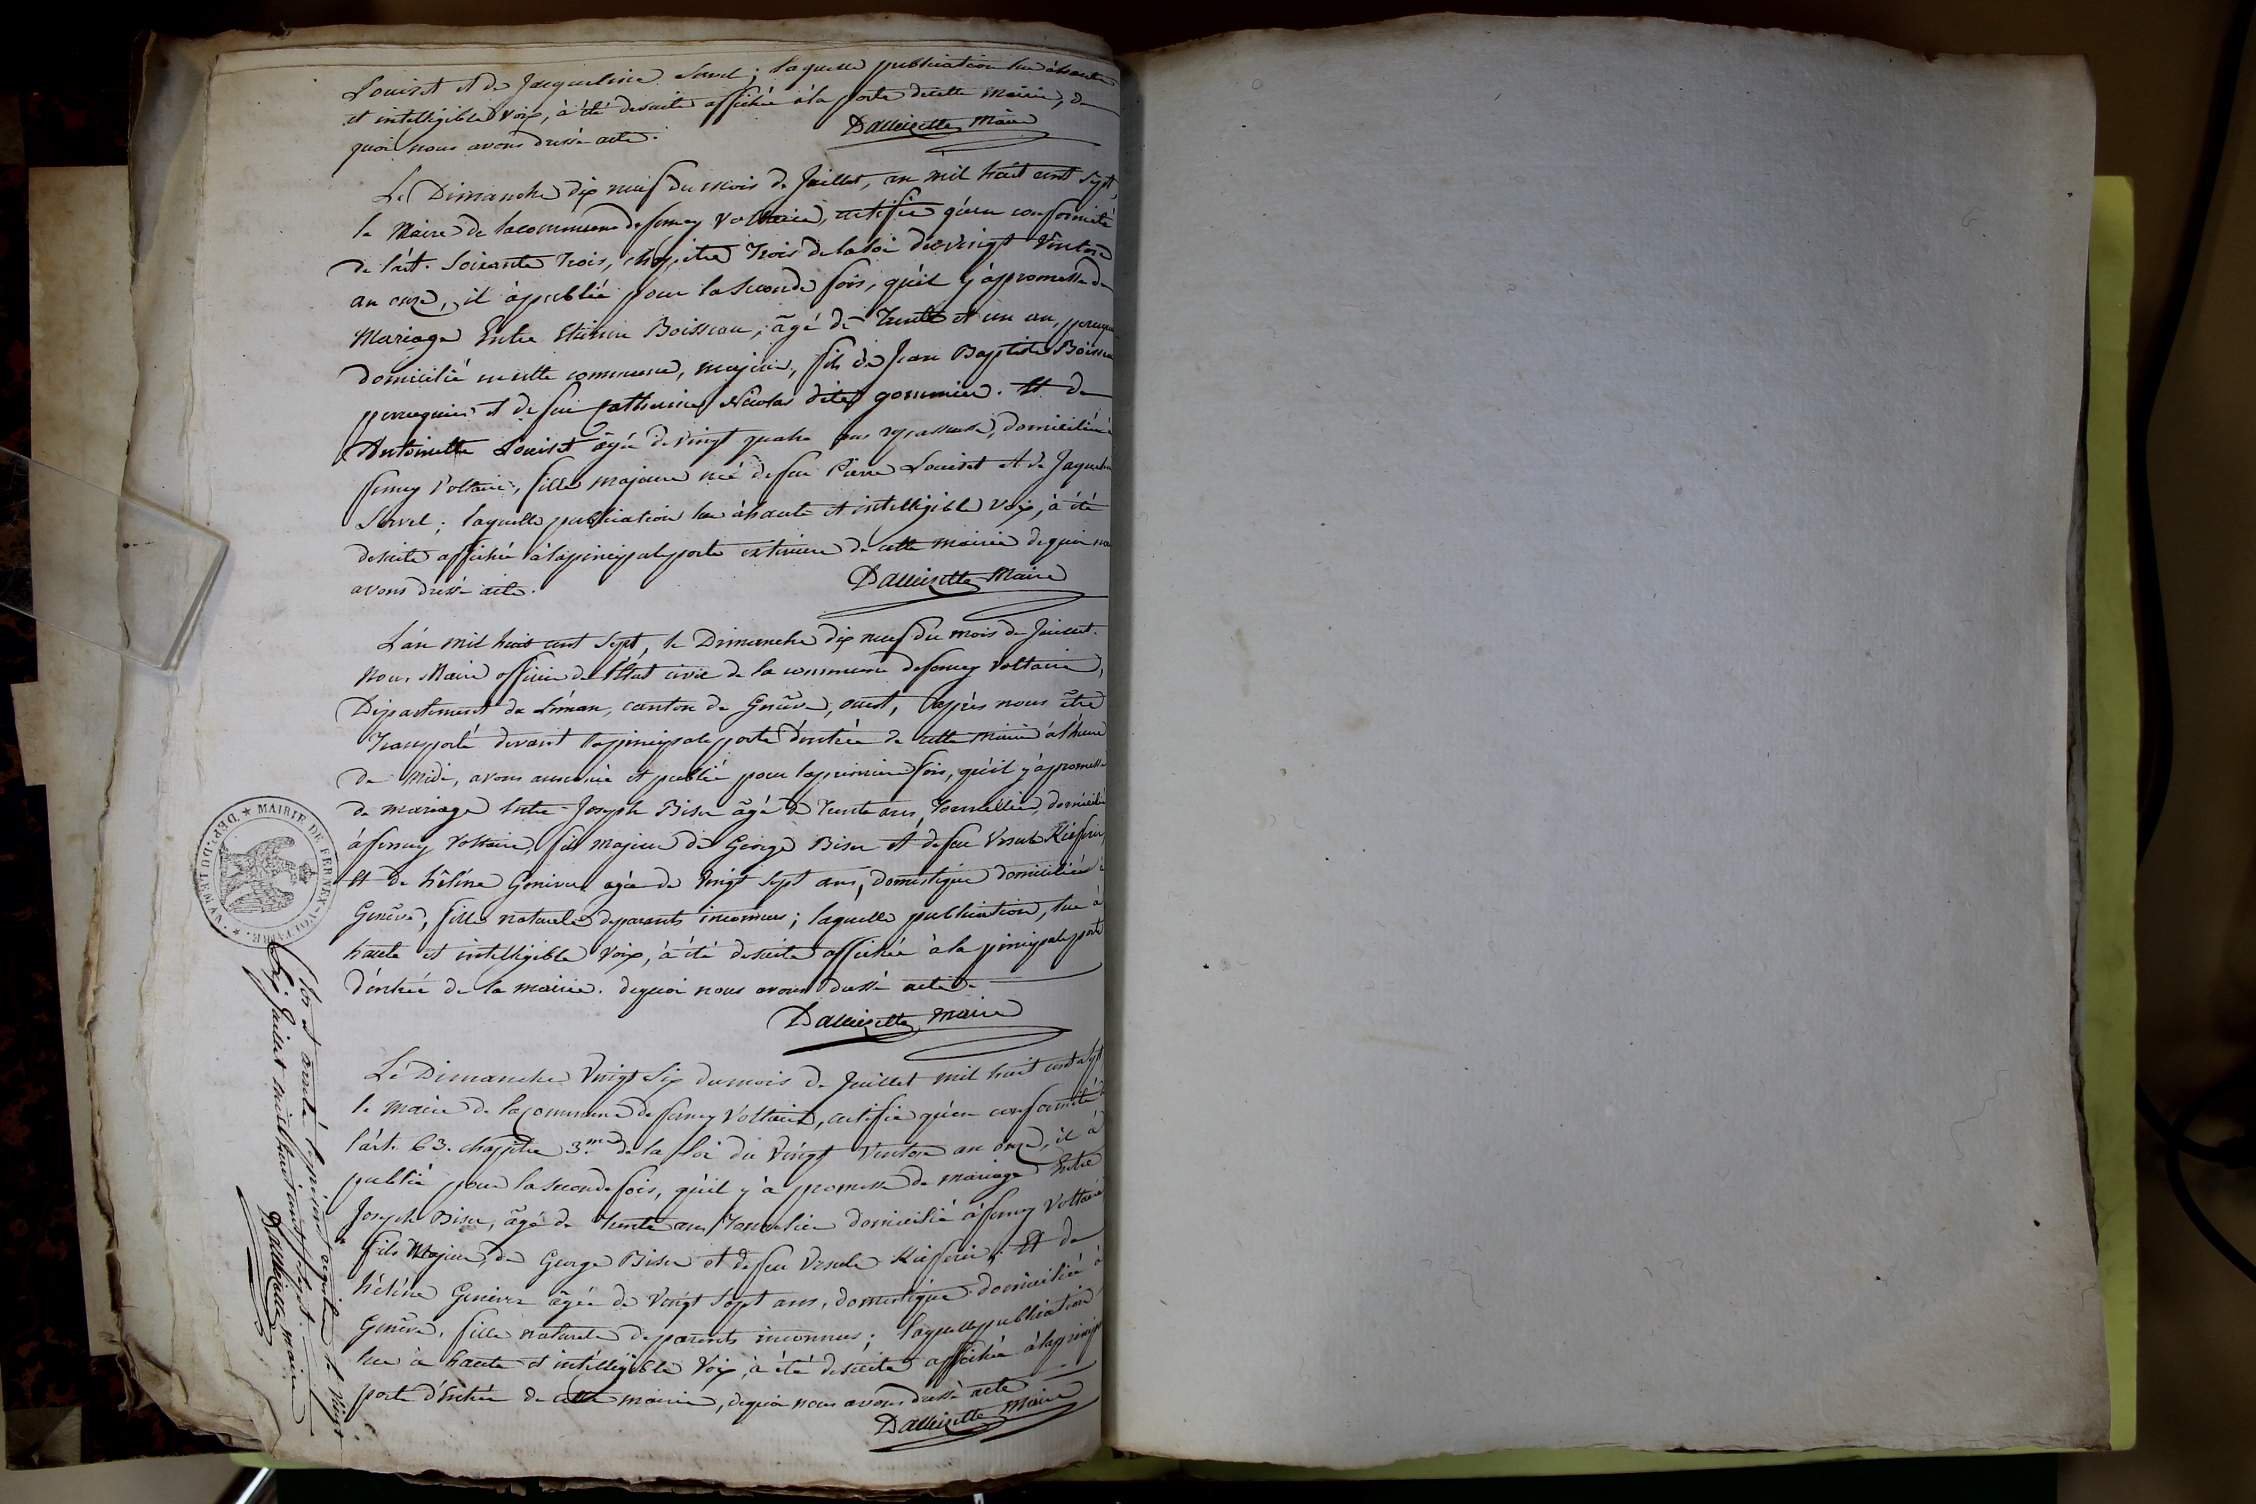 Louiset et de Jacqueline Servel; laquelle publication lue à haute
et intelligible voix, à été desuite affichée à la porte decette Mairie, de
quoi nous avons dressé acte.
Dallizette Maire
Le Dimanche dix neuf du mois de Juillet, an mil huit cent sept,
le Maire de lacommune de ferney Voltaire, certifie qu'en conformité
de l'art. Soixante Trois, chapitre Trois de la loi du vingt Ventose
an onze, il à publié pour la Seconde fois, qu'il y à promesse de
Mariage Entre Etienne Boisseau, âgé de Trente et un an,
domicilié en cette commune, majeur, fils de Jean Baptiste Boisseau
perruquier et de feue Catherine Nicolas dite gommier. Et de
Antoinette Louiset âgée de vingt quatre ans repasseuse, domiciliée à
ferney Voltaire, fille majeure née de feu Pierre Louiset et de Jaqueline
Servel; laquelle publication lue à haute et intelligible voix, à été
desuite affichée à la principale porte exterieure de cette mairie de quoi nous
avons dressé acte.
Dallizette Maire
L'an mil huit cent sept, le Dimanche dix neuf du mois de Juillet.
Nous Maire officier de l'Etat civil de la commune de ferney Voltaire,
Département du Léman, canton de Genêve, ouest, après nous être
Transporté devant la principale porte d'entrée de cette Mairie à l'heure
de midi, avons annoncé et publié pour la premiere fois, qu'il y à promesse
de mariage Entre Joseph Biser âgé de Trente ans, Tonnellier, domicilié
à ferney Voltaire, fils majeur de George Biser et de feue Ursule Kieferin,
Et de héléne Genivre agée de Vingt Sept ans, domestique domiciliée à
Genêve, fille naturele de parents inconnus; laquelle publication, lue à
haute et intelligible Voix, à été desuite affichée à la principale porte
d'entrée de la mairie. de quoi nous avons dressé acte.
Dallizette Maire
Le Dimanche Vingt Six du mois de Juillet mil huit cent sept
le maire de la commune de ferney Voltaire, certifie qu'en conformité de
l'art. 63. chapitre 3.me de la Loi du Vingt Ventose an onze, il à
publié pour la seconde fois, qu'il y à promesse de mariage Entre
Joseph Biser, âgé de Trente ans Tonnelier domicilié à ferney Voltaire
fils Majeur de George Biser et de feue Ursule Kieferin; Et de
héléne Genivre âgée de Vingt Sept ans, domestique domiciliée à
Genêve, fille naturele de parents inconnus; laquelle publication
lue à haute et intelligible Voix, à été desuite affichée à la principale
porte d'Entrée de cette mairie, de quoi nous avons dressé acte
Dallizette Maire
MAIRIE DE FERNEX-VOLTAIRE
DÉP.T DU LÉMAN
Clos et arrêté le présent registre le Vingt
Six Juillet mil huit cent sept.
Dallizette maire